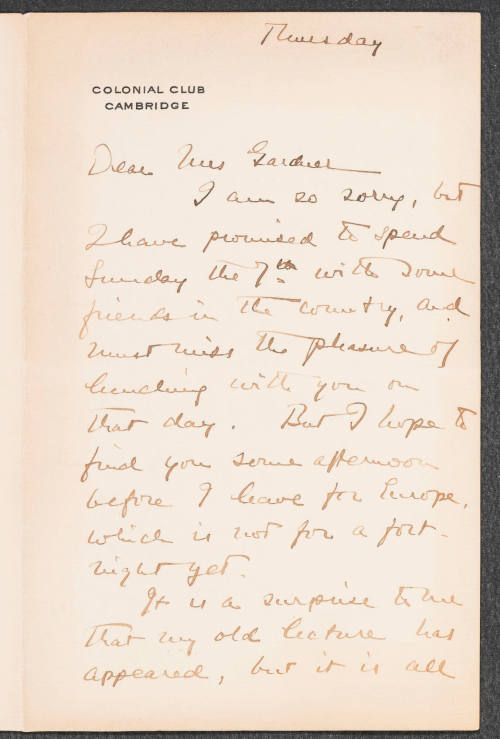 Thursday
COLONIAL CLUB
CAMBRIDGE
Dear Mrs Gardner
I am so sorry, but
I have promised to spend
Sunday the 7th with some
friends in the country, and
must miss the pleasure of
lunching with you on
that day. But I hope to
find you some afternoon
before I leave for Europe,
which is not for a fort-
night yet.
It is a surprise to me
that my old lecture has
appeared, but it is all